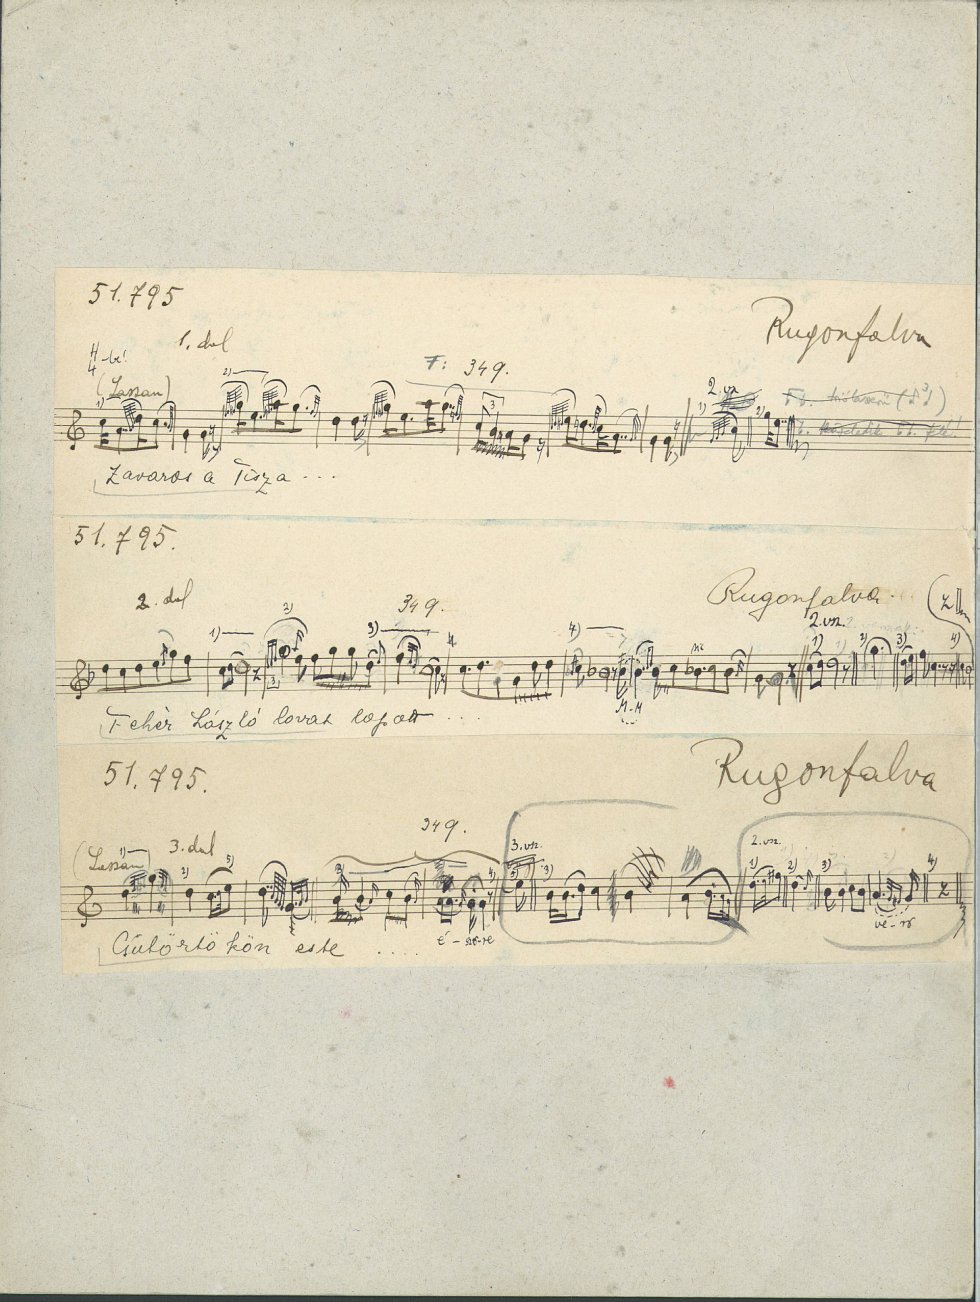 51.795
Rugonfalva
1. dal
(Lassan)
F: 349.
1) 2) 3
2. vsz. 1) 2)
Zavaros a Tisza ...
51.795.
Rugonfalva
2. dal
349.
1) 2) 3) 4)
2. vsz. 1) 2) 3) 4)
3
M-M
Fehér László lovat lopott ...
51.795.
Rugonfalva
3. dal
(Lassan)
349.
3. vsz.
2. vsz.
1) 2) 3) 4)
é-sze-re
ve-rő
Csütörtökön este ....